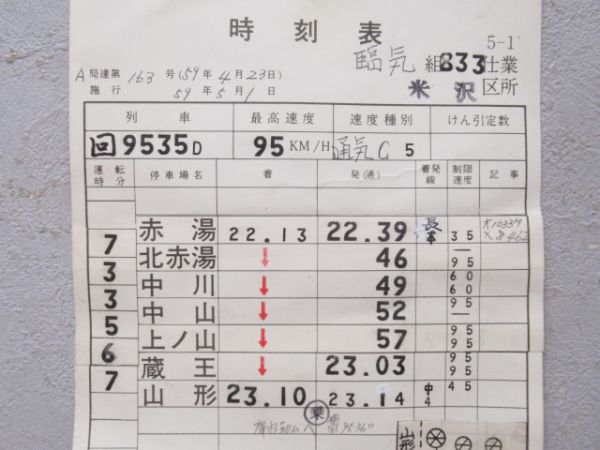 時刻表
5-1
A局達第163号(59年4月23日)
施行 59年5月1日
臨気組833仕業
米沢区所
列車 最高速度 速度種別 けん引定数
回9535D 95KM/H 通気C5
運転時分 停車場名 着 発(通) 着発線 制限速度 記事
赤湯 22.13 22.39 長本 35
7 北赤湯 ↓ 46 — 95
3 中川 ↓ 49 60 60
3 中山 ↓ 52 95 —
5 上ノ山 ↓ 57 95 95
6 蔵王 ↓ 23.03 95 95
7 山形 23.10 23.14 中4 45
乗
山形